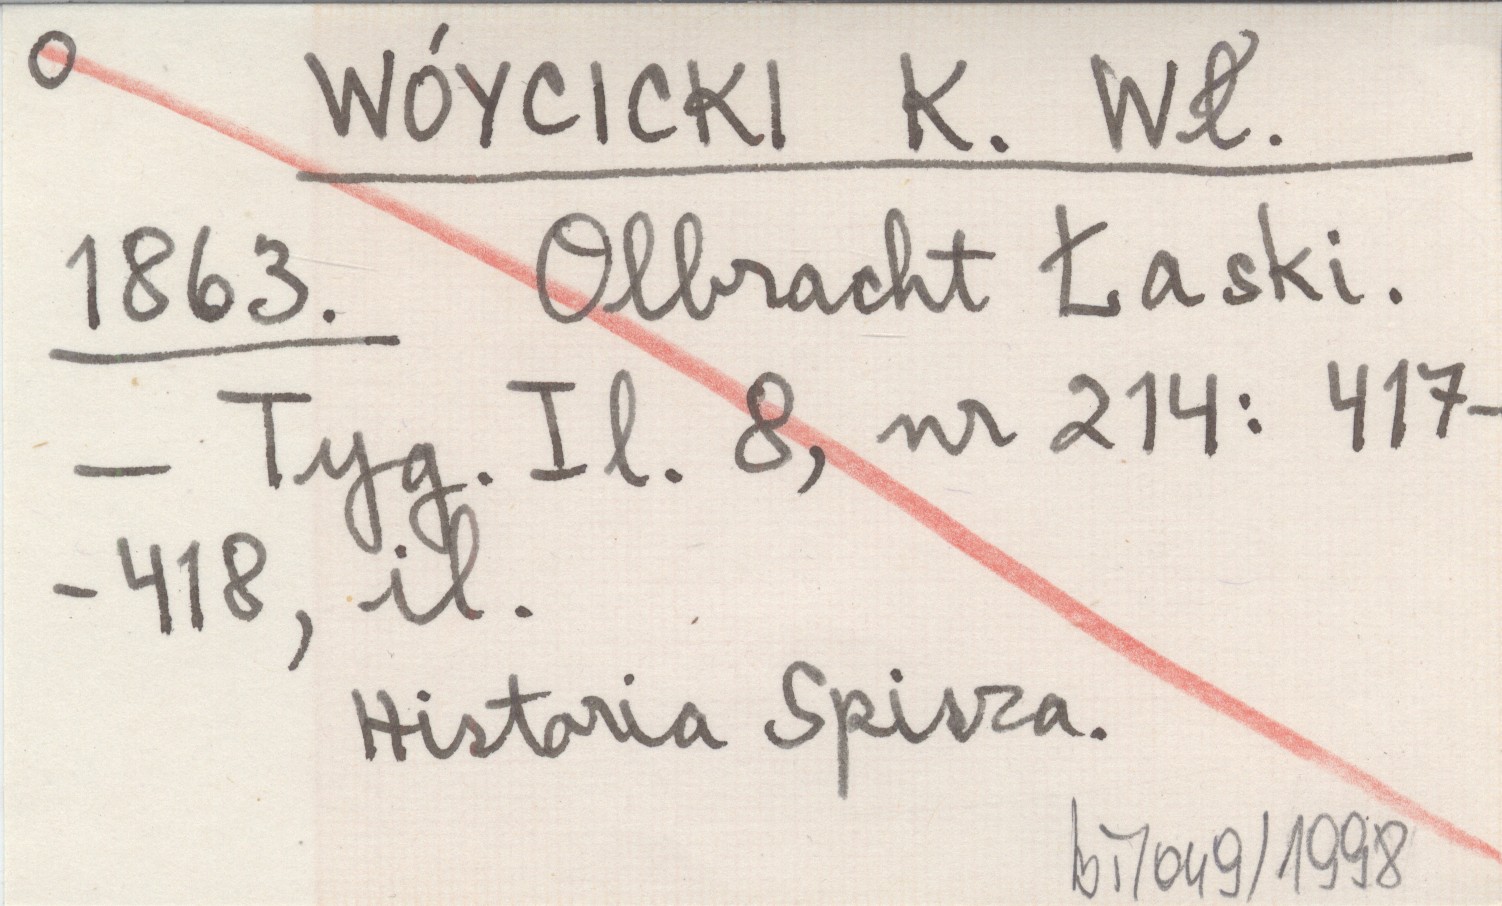 O WÓYCICKI K. Wł.
1863. Olbracht Łaski.
— Tyg. Il. 8, nr 214: 417-
-418, il.
Historia Spisza.
bi/049/1998